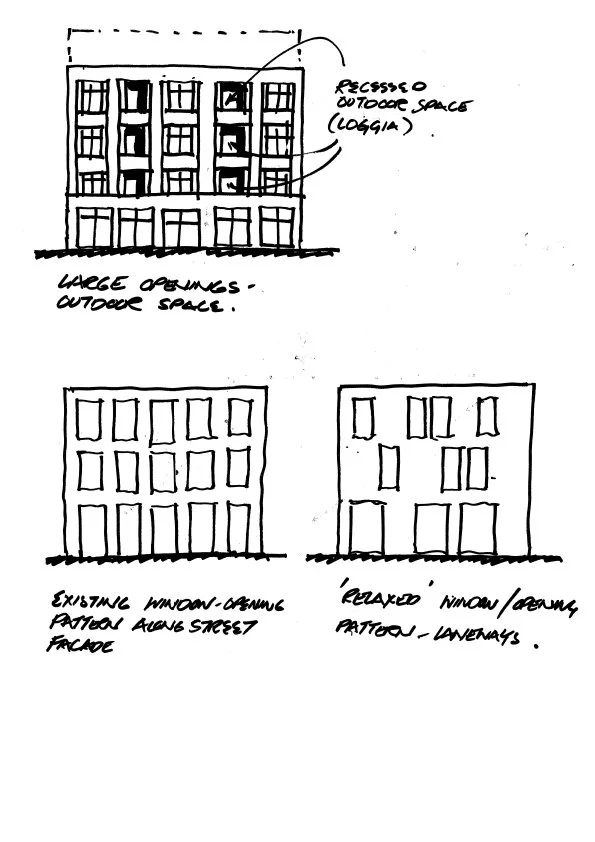 RECESSED
OUTDOOR SPACE
(LOGGIA).
LARGE OPENINGS-
OUTDOOR SPACE.
EXISTING WINDOW-OPENING
PATTERN ALONG STREET
FACADE
'RELAXED' WINDOW/OPENING
PATTERN-LANEWAYS.